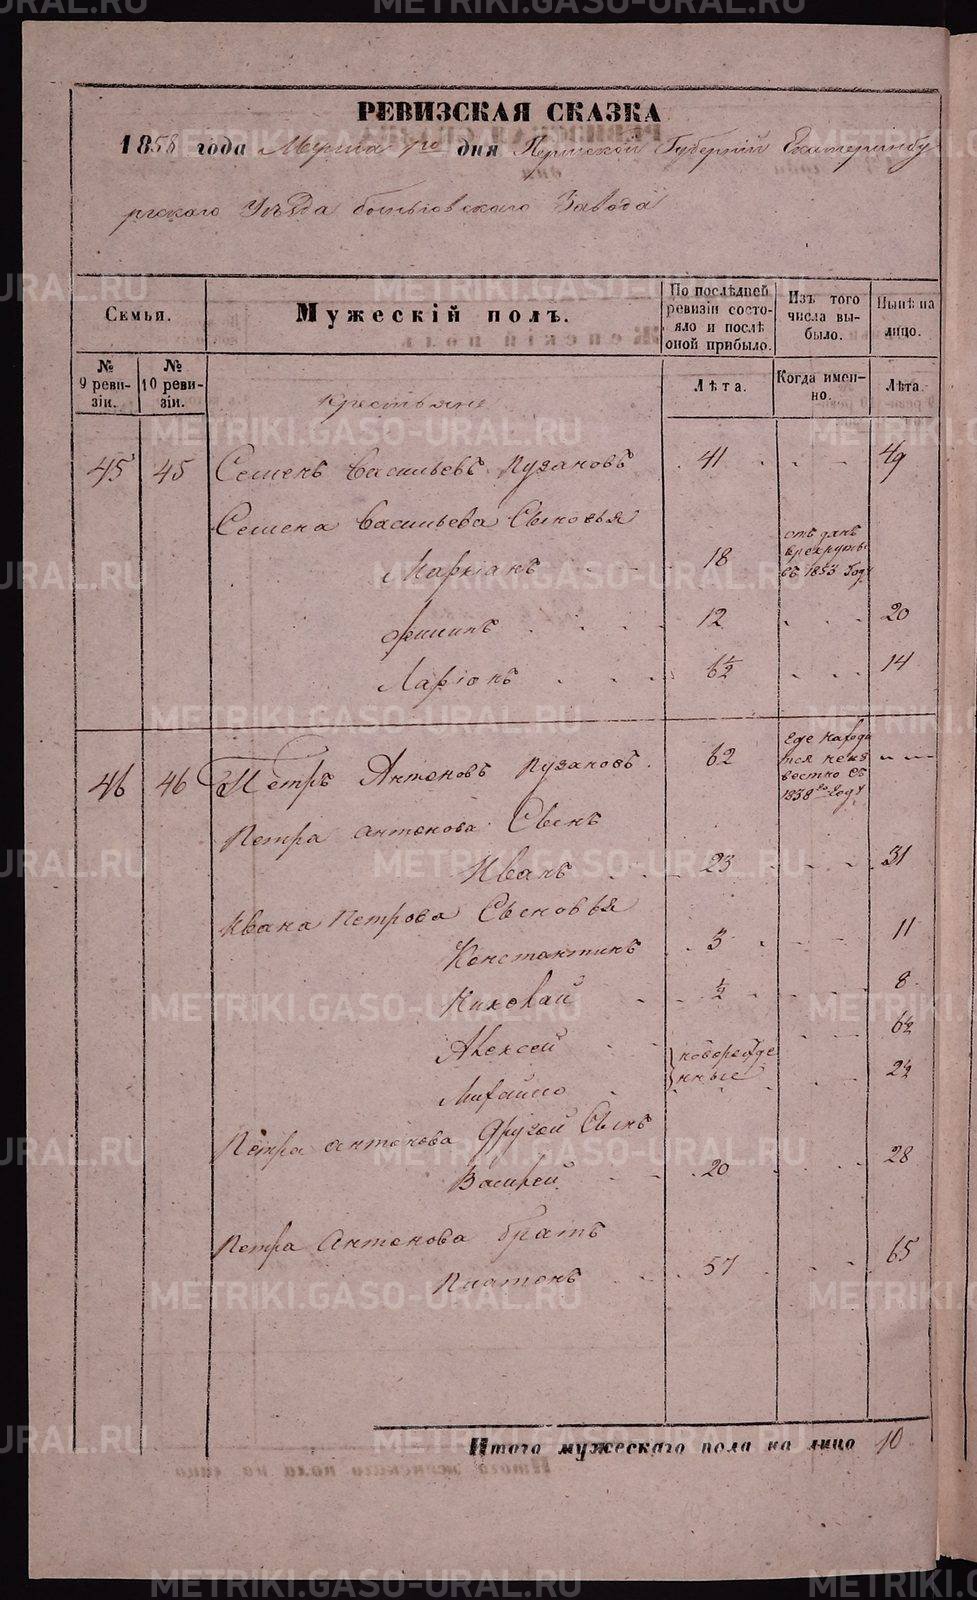 РЕВИЗСКАЯ СКАЗКА
1858 года Марта 1го дня Пермской Губерніи Екатеринбу
ргскаго Уѣзда Завода
Семья.
Мужескій полъ.
По послѣдней ревизіи состояло и послѣ оной прибыло.
Изъ того числа выбыло.
Нынѣ на лицо.
№ 9 ревизіи.
№ 10 ревизіи.
Лѣта.
Когда именно.
Лѣта.
Крестьяне
45 45 Семенъ Васильевъ Пузановъ 41 49
Семена Васильева Сыновья
Маркіанъ 18 отданъ в рекруты съ 1853 Году
Филипъ 12 20
Ларіонъ 6½ 14
46 46 Петръ Антоновъ Пузановъ. 62 где находится неизвестно съ 1838го Году
Петра Антонова Сынъ
Иванъ 23 31
Ивана Петрова Сыновья
Константинъ 3 11
Николай ½ 8
Алексей новорожденные 6½
Михайло 2½
Петра Антонова другой Сынъ
Василей 20 28
Петра Антонова братъ
Платонъ 57 65
Итого мужескаго пола на лицо 10
METRIKI.GASO-URAL.RU